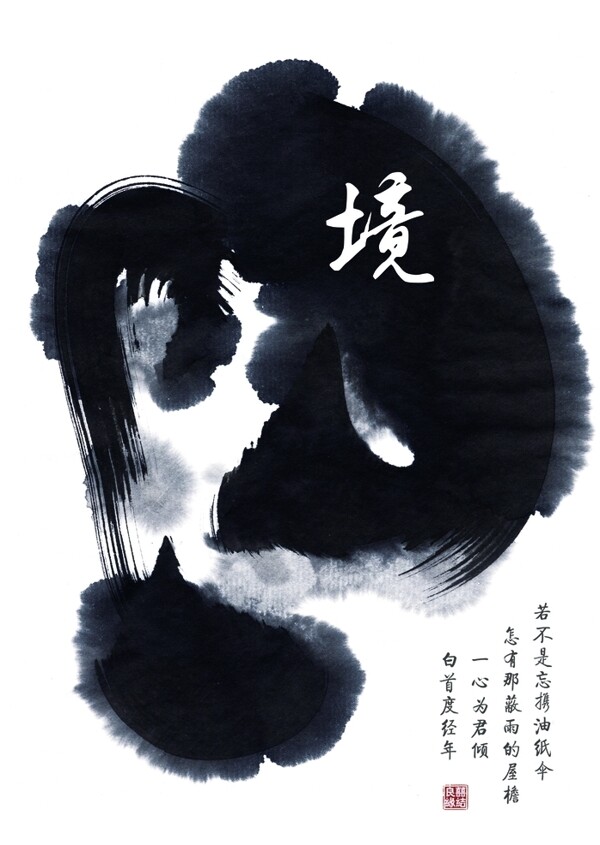 境
若不是忘携油纸伞
怎有那蔽雨的屋檐
一心为君倾
白首度经年